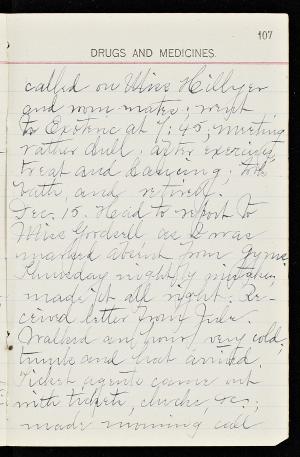 107
DRUGS AND MEDICINES.
called on Miss Hillyer
and room mates; went
to Exoteric at 7:45, meeting
rather dull, after exercises,
treat and dancing; took
bath, and retired.
Dec. 15. Had to report to
Miss Goodsell as I was
marked absent from gym.
Thursday night by mistake,
made it all right. Re-
ceived letter from
Walked an hour, very cold;
trunk and hat arrived.
Ticket agents came out
with tickets, checks, &c.;
made morning call